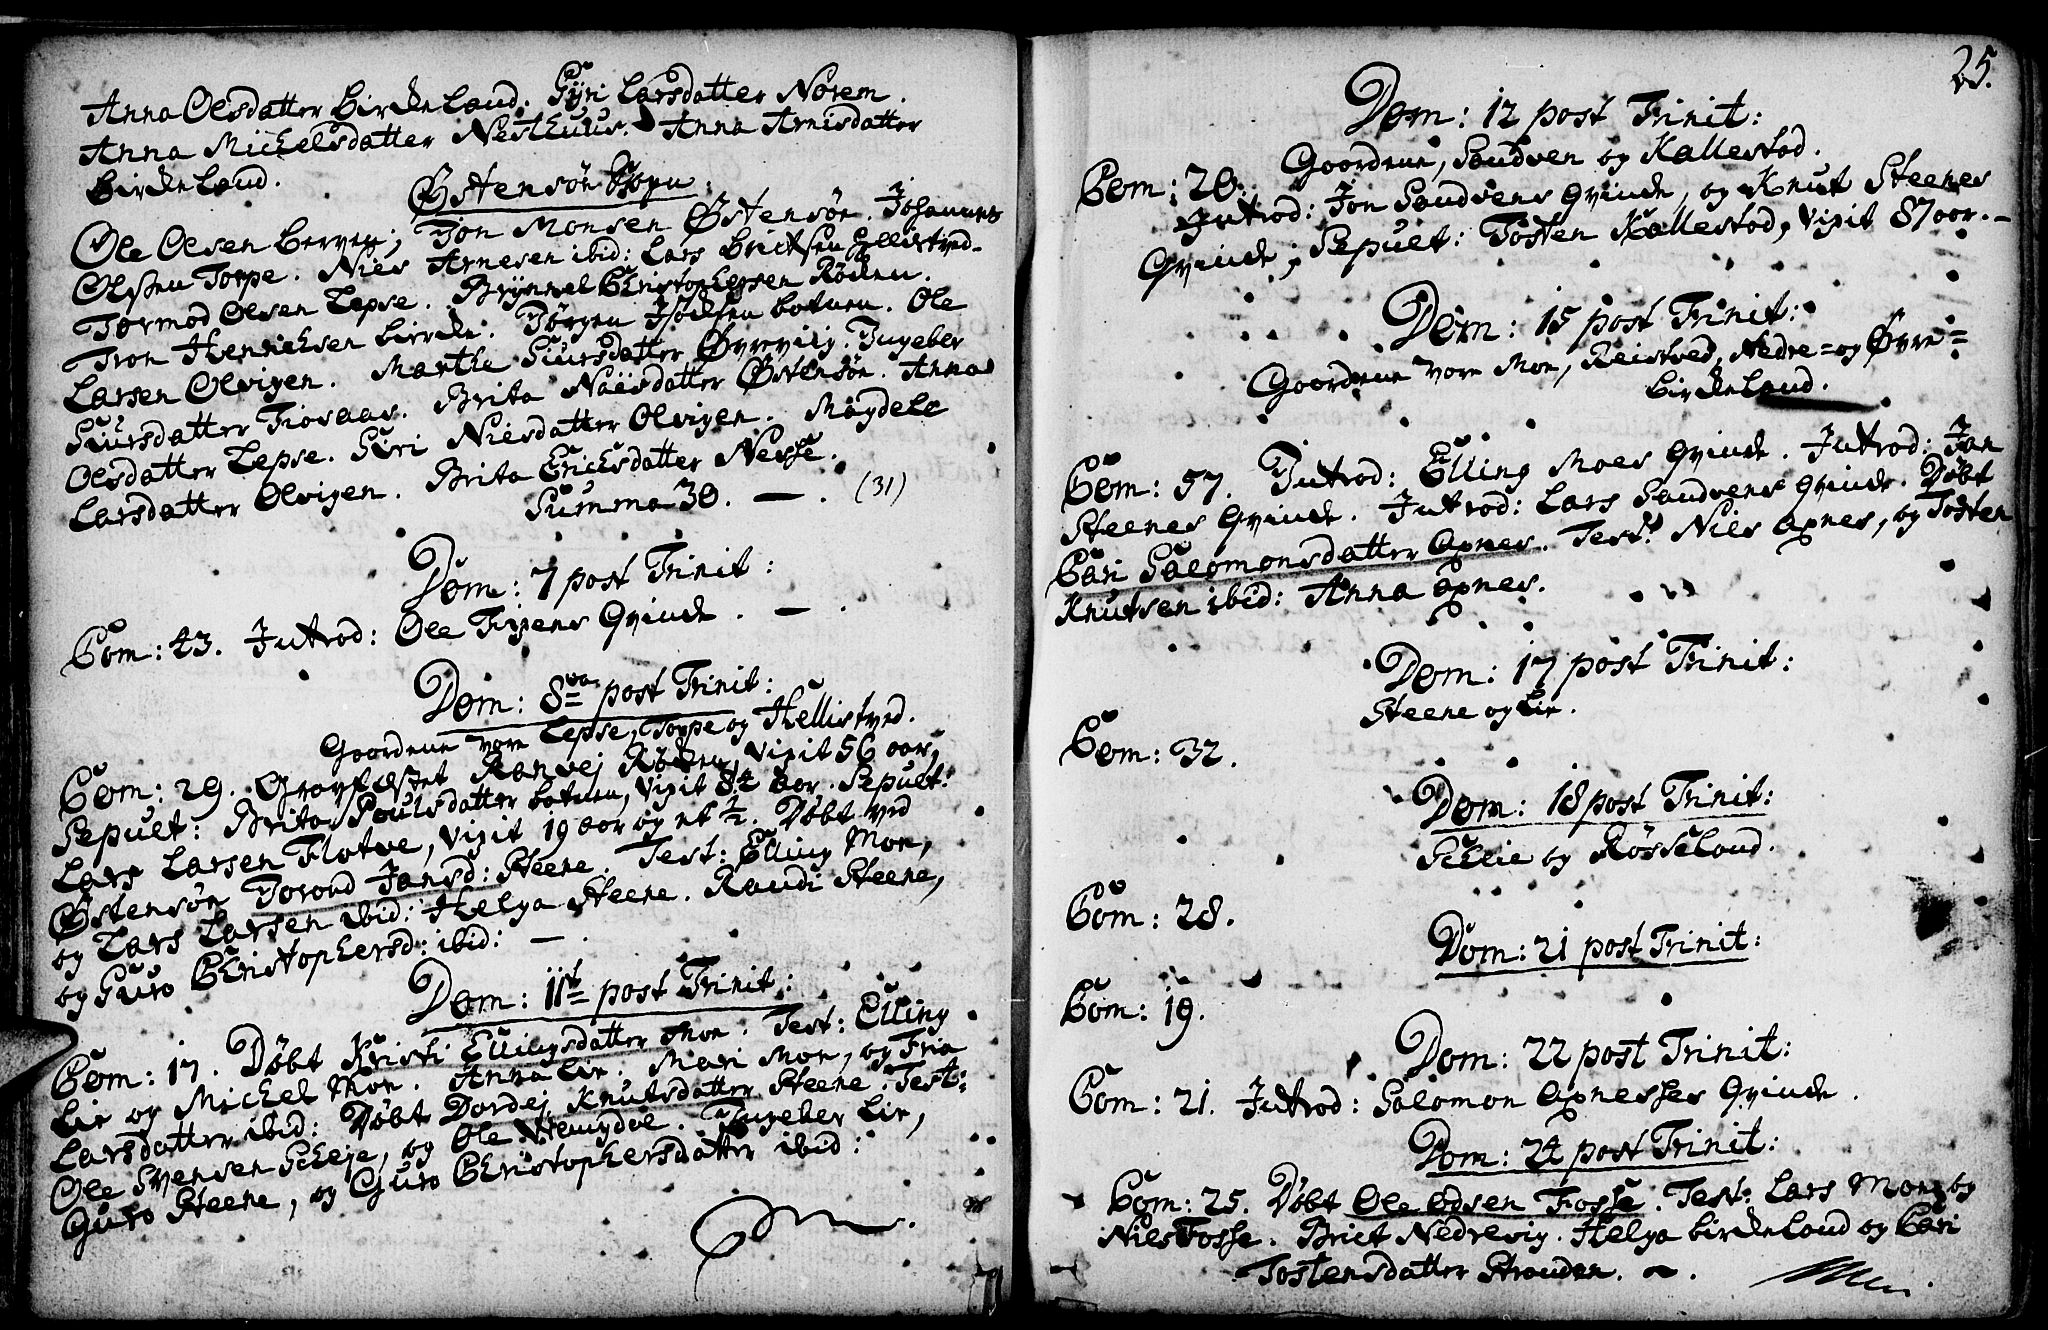 Anna Olsdatter Birckeland. Gyri Larsdatter Norem.
Anna Michelsdatter Nesthuus. Anna Arnisdatter
Birckeland.
Østensøe Sogn.
Ole Olsen Berven; Jon Monsen Østensøe. Johannes
Olssen Torpe. Niels Arnesen ibid: Lars Ericksen Hellistved.
Tormod Olsen Lepse. Brynnel Christophersen Røden.
Tron Henricksen Bircke. Jørgen botnen. Ole
Larsen Olvigen. Marthe Siursdatter Øvrevig. Ingeber
Siursdatter Fiosaas. Brita Nielsdatter Østensøe. Anna
Olsdatter Lepse. Siri Nielsdatter Olvigen. Magdele
Larsdatter Olvigen. Brita Ericksdatter Nesse.
Summa 30. — . (31)
Dom: 7 post Trinit:
Com: 43. Introd: Ole Qvinde. — .
Dom: 8va post Trinit:
Goordene vore Lepse, Torpe og Hellistved.
Com: 29. Gravfæstet Ranvej Røden, vixit 56 aar,
Sepult: Brita Poulsdatter botnen, vixit 84 aar. Sepult:
Lars Larsen Flotve, vixit 19 aar og et ½. Døbt ved
Østensøe Torond Jansd: Steene. Test: Elling Moe,
og Lars Larsen ibid: Helga Steene. Randi Steene,
og Guro Christophersd: ibid: — .
Dom: 11te post Trinit:
Com: 17. Døbt Kristi Ellingsdatter Moe. Test: Elling
Lie og Michel Moe. Anna Lie. Mari Moe, og
Larsdatter ibid: Døbt Dordej Knutsdatter Steene. Test:
Ole Svensen Scheje, og Ole . Ingeber Lie,
Guro Steene, og Guro Christophersdatter ibid:
25.
Dom: 12 post Trinit:
Goordene, Sandven og Kallestad.
Com: 20. Introd: Jon Sandvens Qvinde, og Knut Steenes
Qvinde; Sepult: Tosten Kallestad, vixit 87 aar. —
Dom: 15 post Trinit:
Goordene vore Moe, Reistved, Nedre= og Øvre=
Birckeland.
Com: 57. Introd: Elling Moes Qvinde. Introd: Jan
Steenes Qvinde. Introd: Lars Sandvens Qvinde. Døbt
Cari Salomonsdatter Axnes. Test: Niels Axnes, og Tosten
Knutsen ibid: Anna Axnes.
Dom: 17 post Trinit:
Steene og Lie.
Com: 32.
Dom: 18 post Trinit:
Scheie og Røsseland.
Com: 28.
Dom: 21 post Trinit:
Com: 19.
Dom: 22 post Trinit:
Com: 21. Introd: Salomon Axnesses Qvinde.
Dom: 24 post Trinit:
Com: 25. Døbt Ole Odsen Fosse. Test: Lars Moe og
Niels Fosse. Briet Nedrevig. Helga Birckeland og Cari
Tostensdatter Stranden.